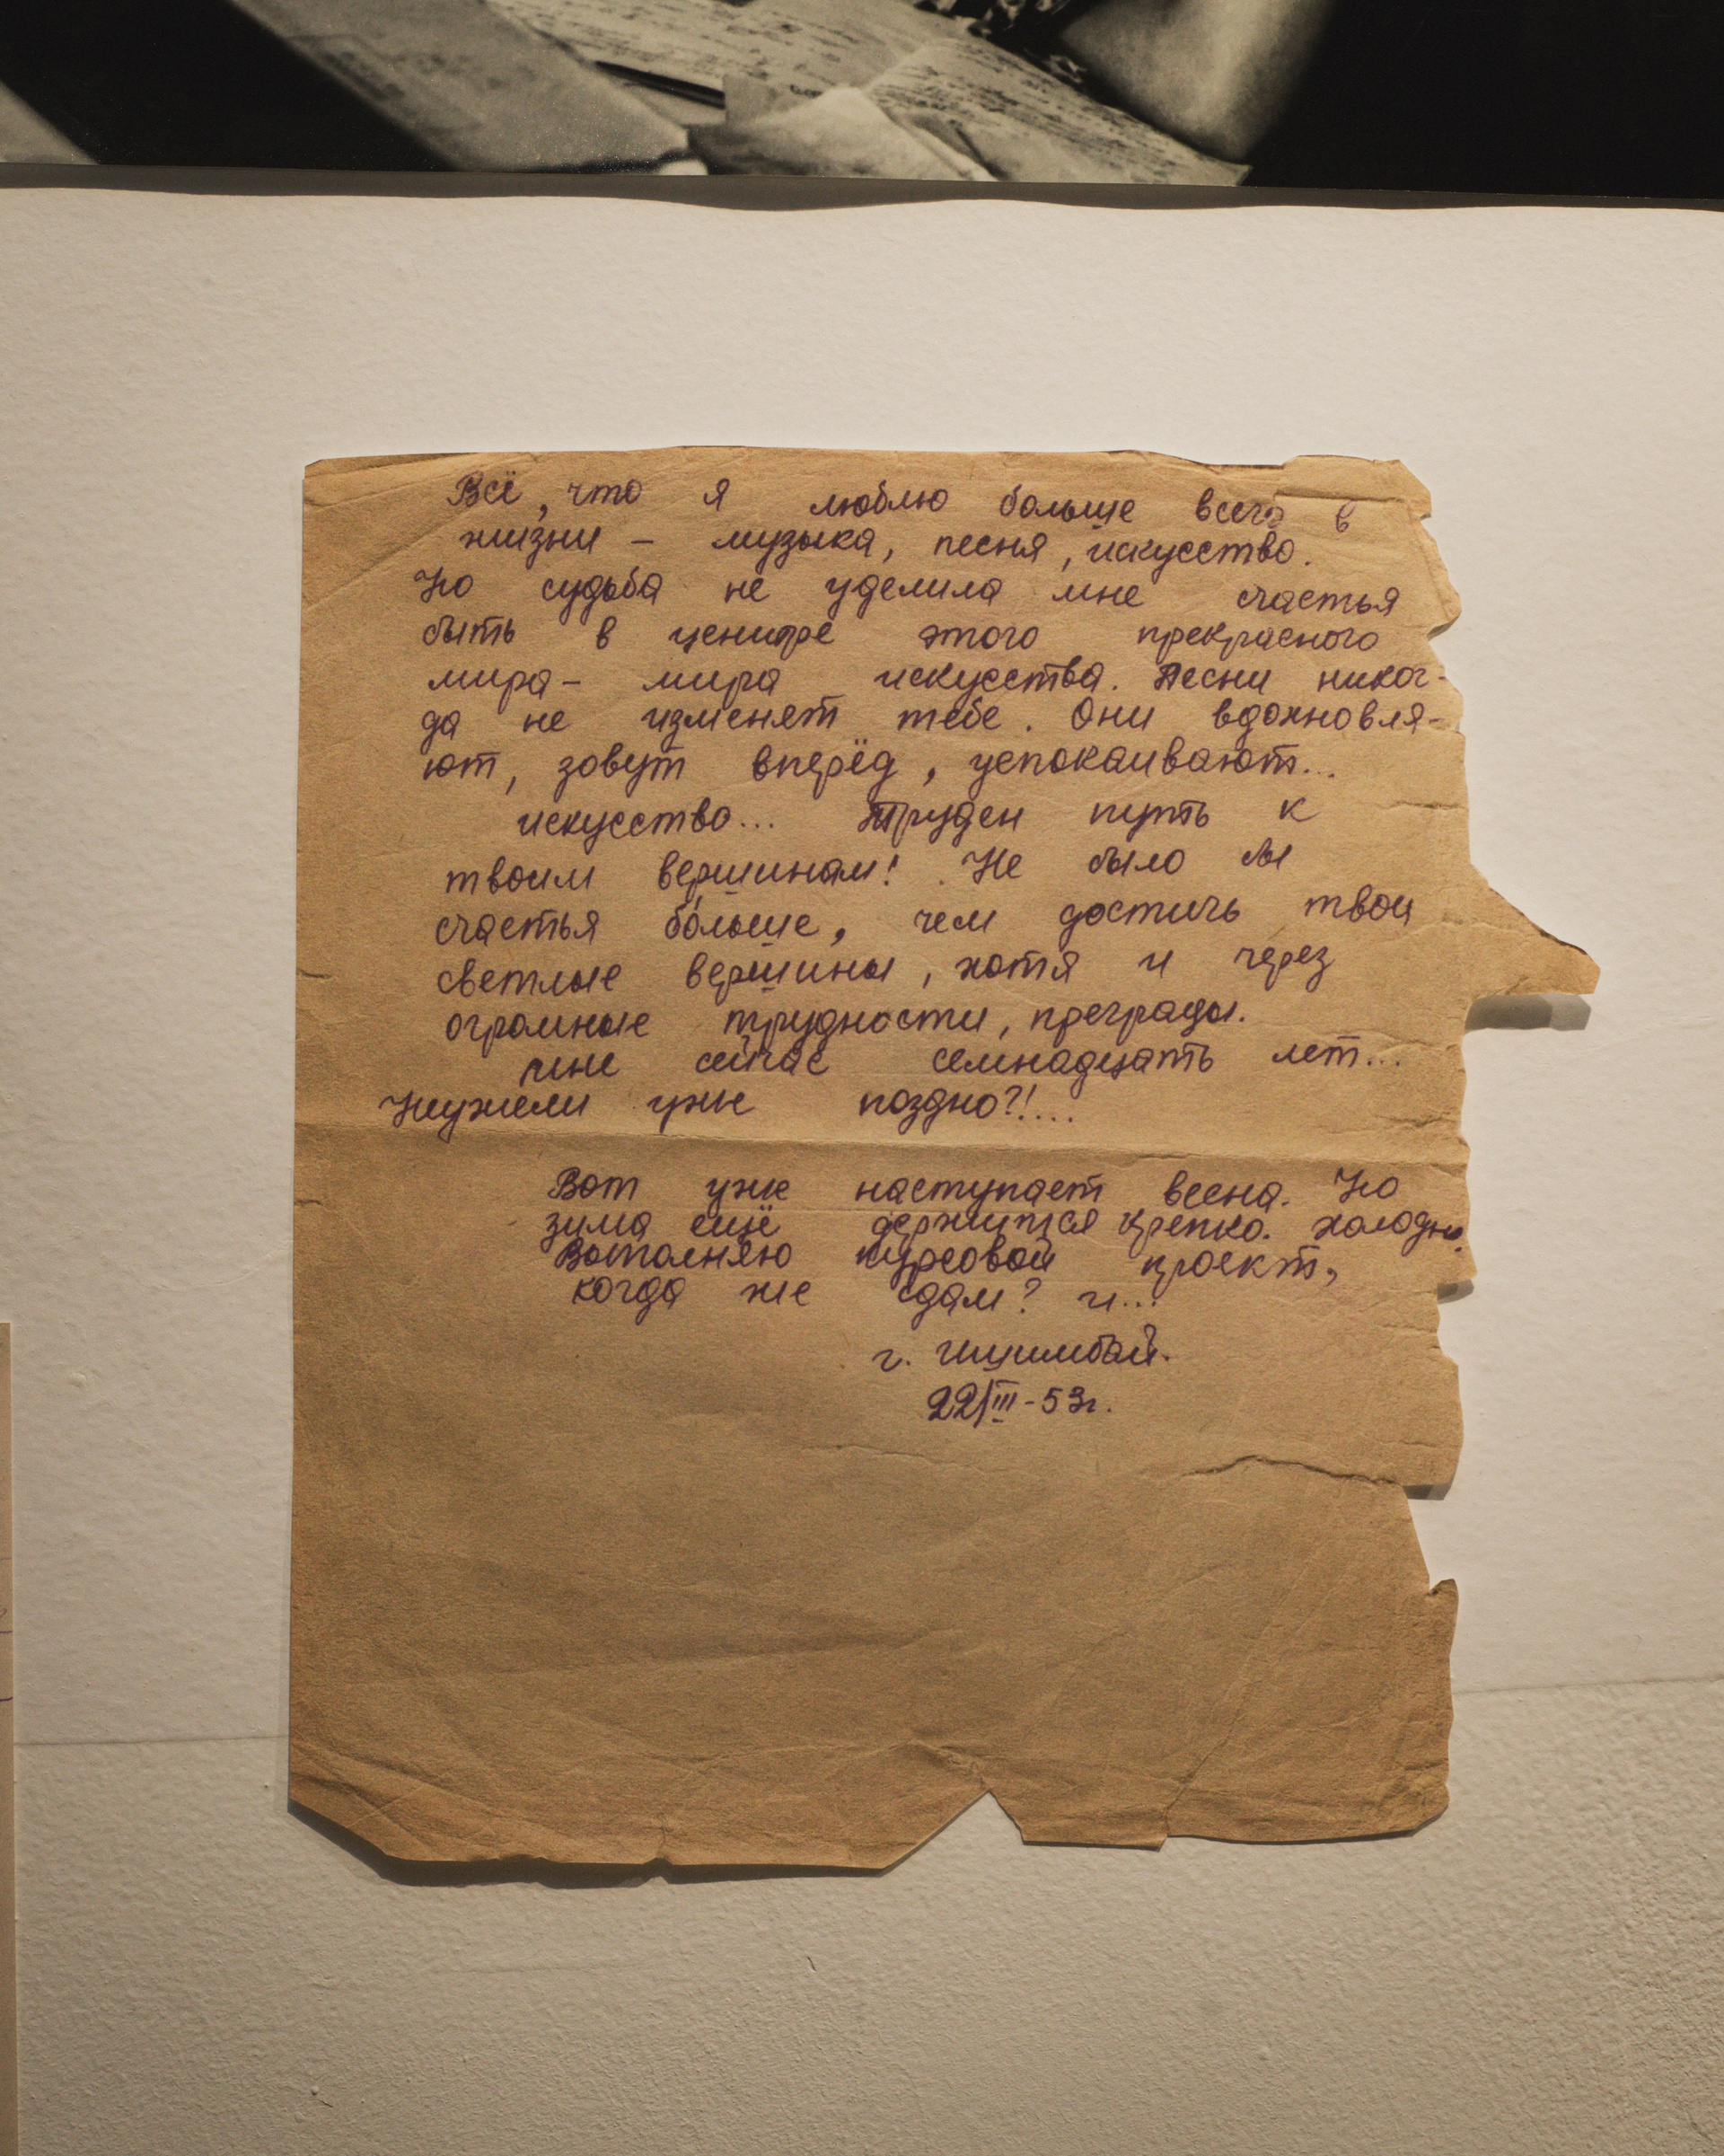 Всё, что я люблю больше всего в
жизни – музыка, песня, искусство.
Но судьба не уделила мне счастья
быть в центре этого прекрасного
мира – мира искусства. Песни никог-
да не изменят тебе. Они вдохновля-
ют, зовут вперёд, успокаивают...
искусство... Труден путь к
твоим вершинам! Не было бы
счастья бо́льше, чем достичь твои
светлые вершины, хотя и через
огромные трудности, преграды.
мне сейчас семнадцать лет...
Неужели уже поздно?!...
Вот уже наступает весна. Но
зима ещё держится крепко. холодно.
Выполняю курсовой проект,
когда же сдам? и...
г. Ишимбай.
22/III-53г.